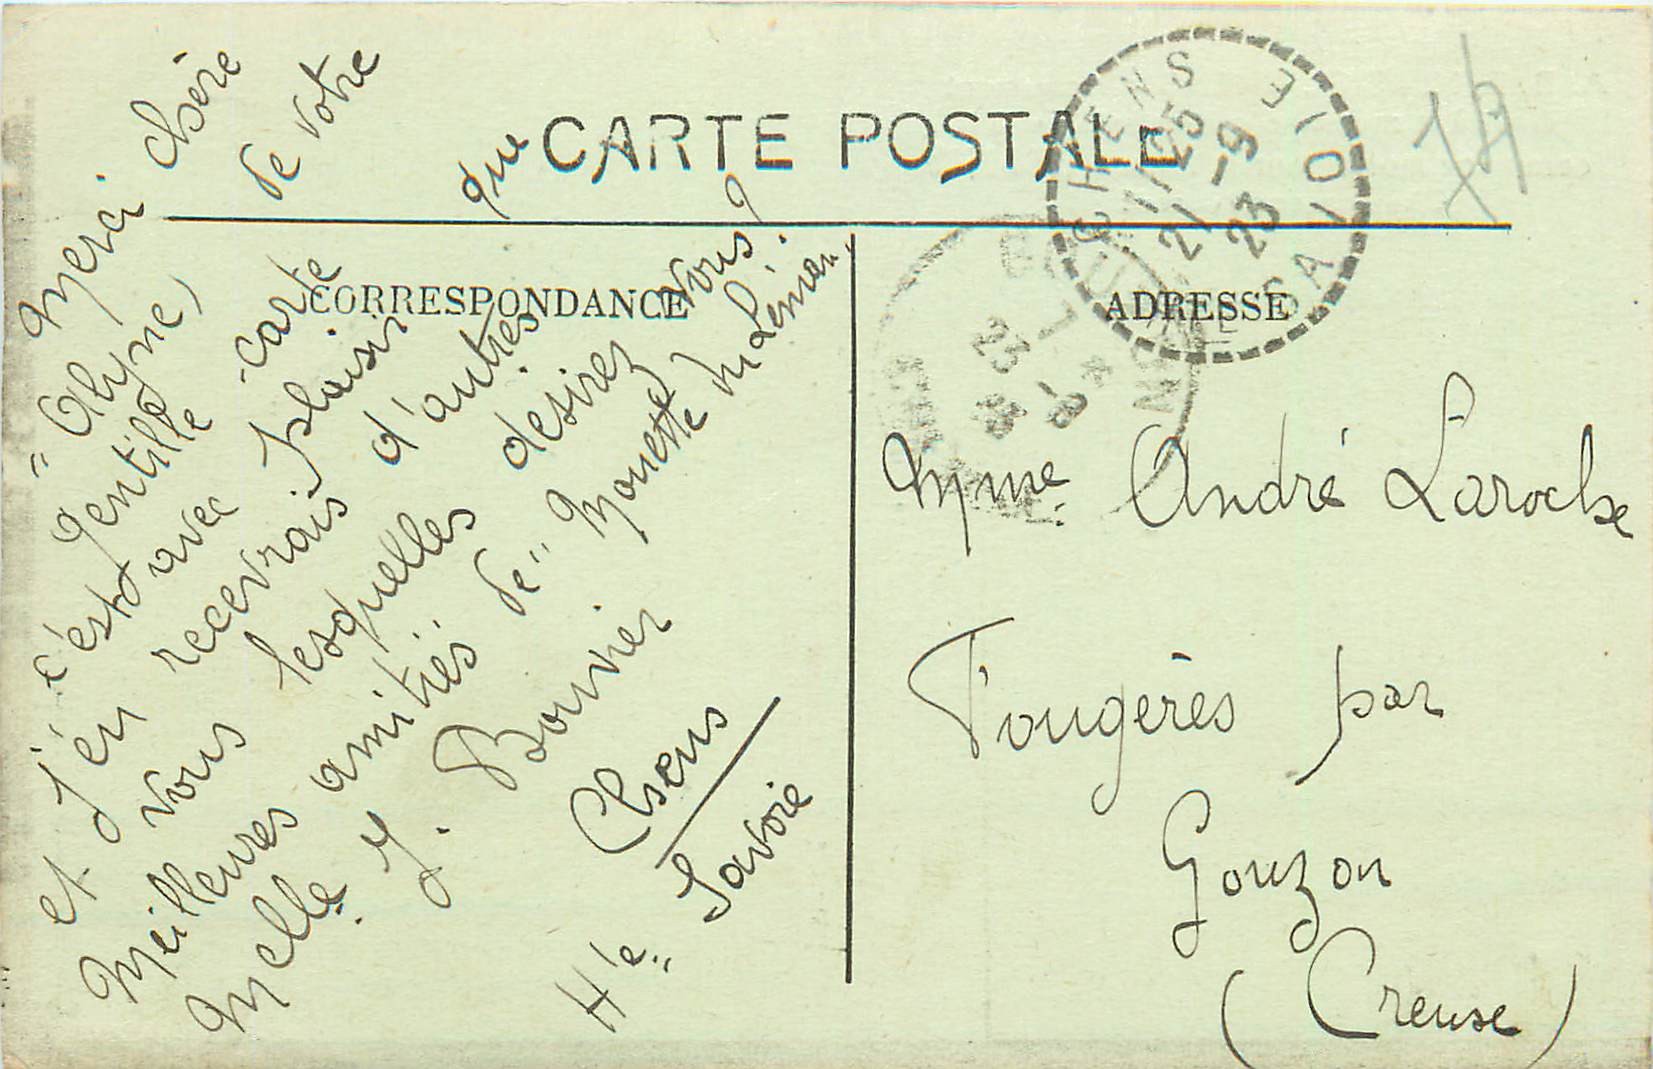 CARTE POSTALE
CORRESPONDANCE
ADRESSE
Merci chère
" Olyne, de votre
gentille carte
c'est avec plaisir que
et j'en recevrais d'autres
vous lesquelles desirez vous?
Meilleures amitiés de "Mouette du Léman".
Melle. Y. Bouvier
Chens
Hte. Savoie
Mme. André Laroche
Fougères par
Gouzon
(Creuse)
CHENS
11 25
21 -9
23
SAVOIE
23